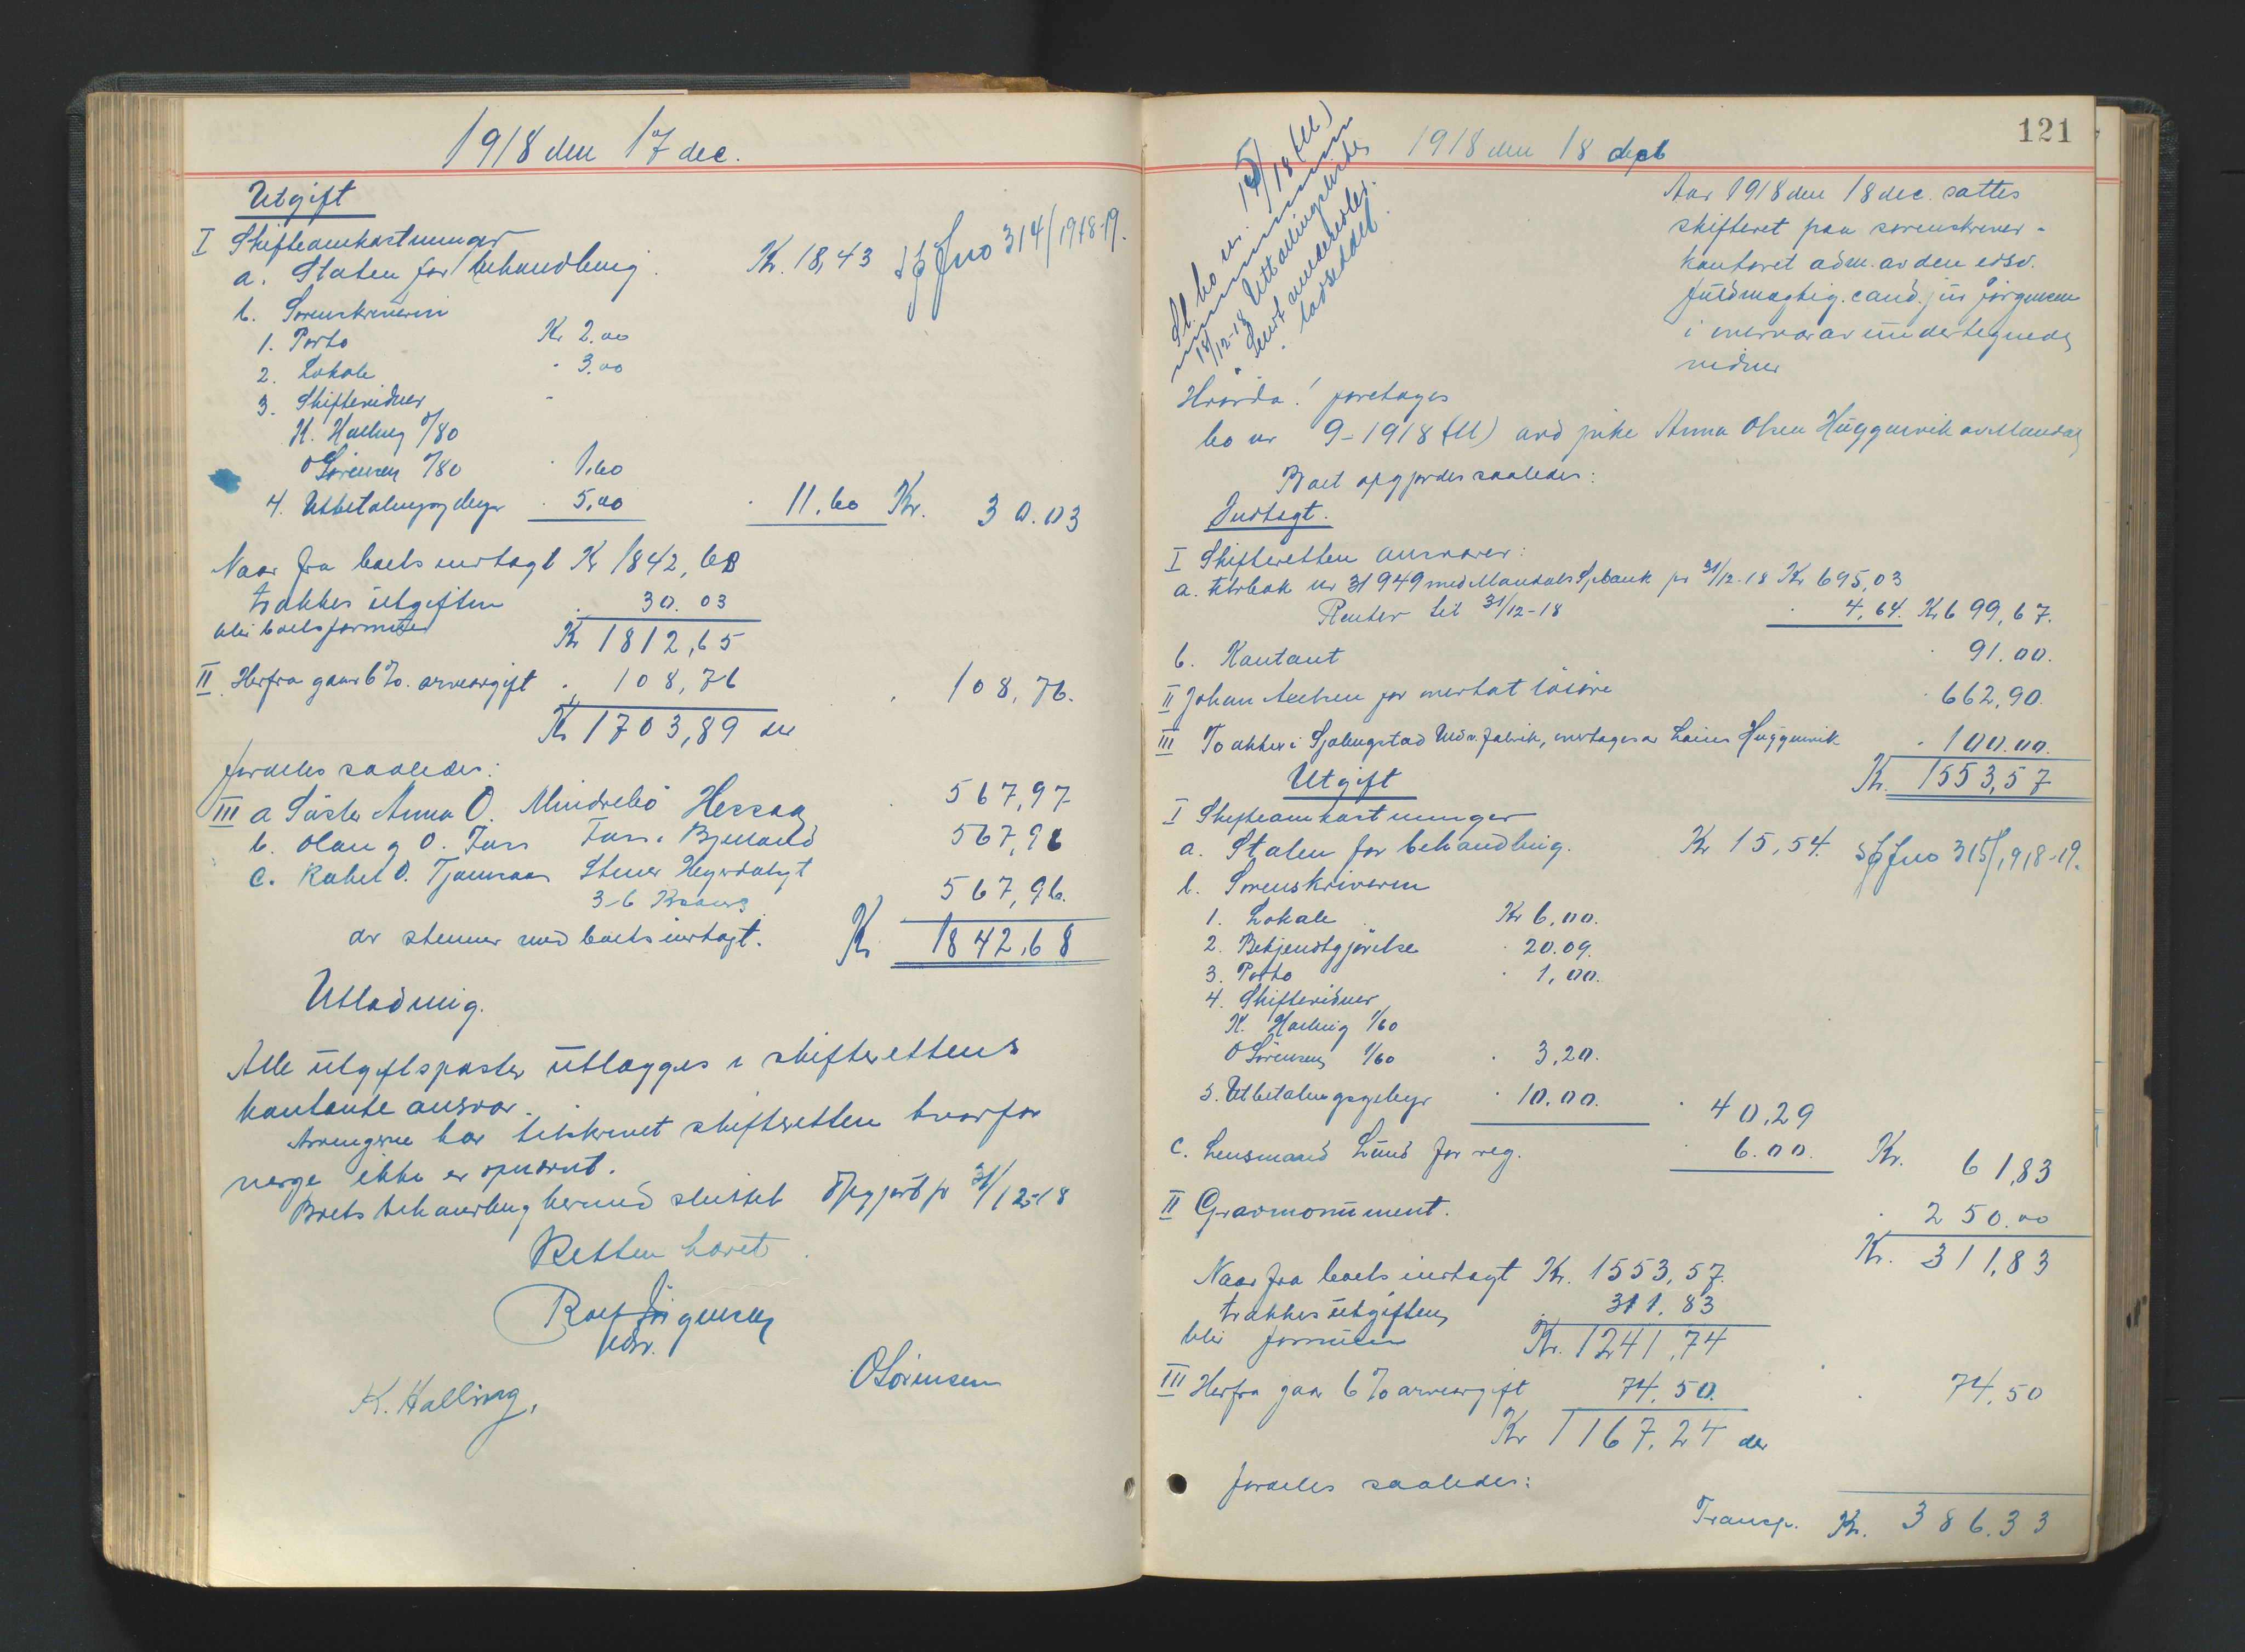 1918 den 17 dec.
Utgift
I Skifteomkostninger
a. Staten for behandling. Kr. 18,43 Jno 314/1918-19.
b. Sorenskriveren
1. Porto Kr 2.00
2. Lokale " 3.00
3. Skiftevidner -
K. Halling /80
O Sørensen /80 " 1.60
4. Utbetalingsgebyr " 5,00 " 11.60 Kr. 30.03
Naar fra boets indtægt Kr 1842,68
trækkes utgiften " 30.03
blir boets formue Kr 1812,65
II Herfra gaar 6%. arveavgift " 108,76 " 108,76.
Kr 1703,89 der
fordeles saaledes:
III a Søster Anna O. Mindrebø Hessaa " 567,97
b. Olaug O. Foss Foss. Bjelland 567,96
c. Rakel O. Tjomsaas Stener Heyerdahlsgt 567,96.
3-6 Krsand
der stemmer med boets indtægt. Kr. 1842,68
Utlodning.
Alle utgiftsposter utlægges i skifterettens
kontante ansvar.
Arvingerne har tilskrevet skifteretten hvorfor
verge ikke er opnævnt.
Boets behandling hermed sluttet Opgjort pr 31/12-18
Retten hævet.
Rolf Jørgensen
kst.
K. Halling. O Sørensen
121
1918 den 18 dec
Sl. bo nr. 15/18 (M)
18/12-18 Utlodningslister
sendt
Aar 1918 den 18 dec. sattes
skifteret paa sorenskriver-
kontoret adm. av den edsv.
fuldmægtig. cand. jur Jørgensen
i nærvær av undertegnede
vidner
Hvorda! foretages
bo nr 9-1918 (M) avd pike Anna Olsen Huggenvik av Mandal
Boet opgjordes saaledes:
Indtægt.
I Skifteretten ansvarer:
a. ktrbok nr 31949 med Mandals Spbank pr 31/12-18 Kr 695,03
Renter til 31/12-18 " 4,64. Kr 699,67.
b. Kontant " 91.00.
II Johan Axelsen for overtat løsøre " 662,90.
III To aktier i Sjølingstad Uldv. fabrik, overtages av Laurs Huggenvik " 100.00.
Kr. 1553,57
Utgift
I Skifteomkostninger
a. Staten for behandling. Kr 15,54. Jno 315/1918-19.
b. Sorenskriveren
1. Lokale Kr 6,00.
2. Bekjendtgjørelse " 20.09.
3. Porto " 1,00.
4. Skiftevidner
K. Halling 1/60
O Sørensen 1/60 " 3,20.
5. Utbetalingsgebyr " 10.00. " 40,29
c. Lensmand Lund for reg. " 6.00. Kr. 61,83
II Gravmonument. " 250.00
Kr. 311,83
Naar fra boets indtægt Kr. 1553,57.
trækkes utgiften " 311.83
blir formuen Kr. 1241,74
III Herfra gaar 6% arveavgift 74,50. " 74,50
Kr 1167,24 der
fordeles saaledes:
Transp. Kr. 386.33